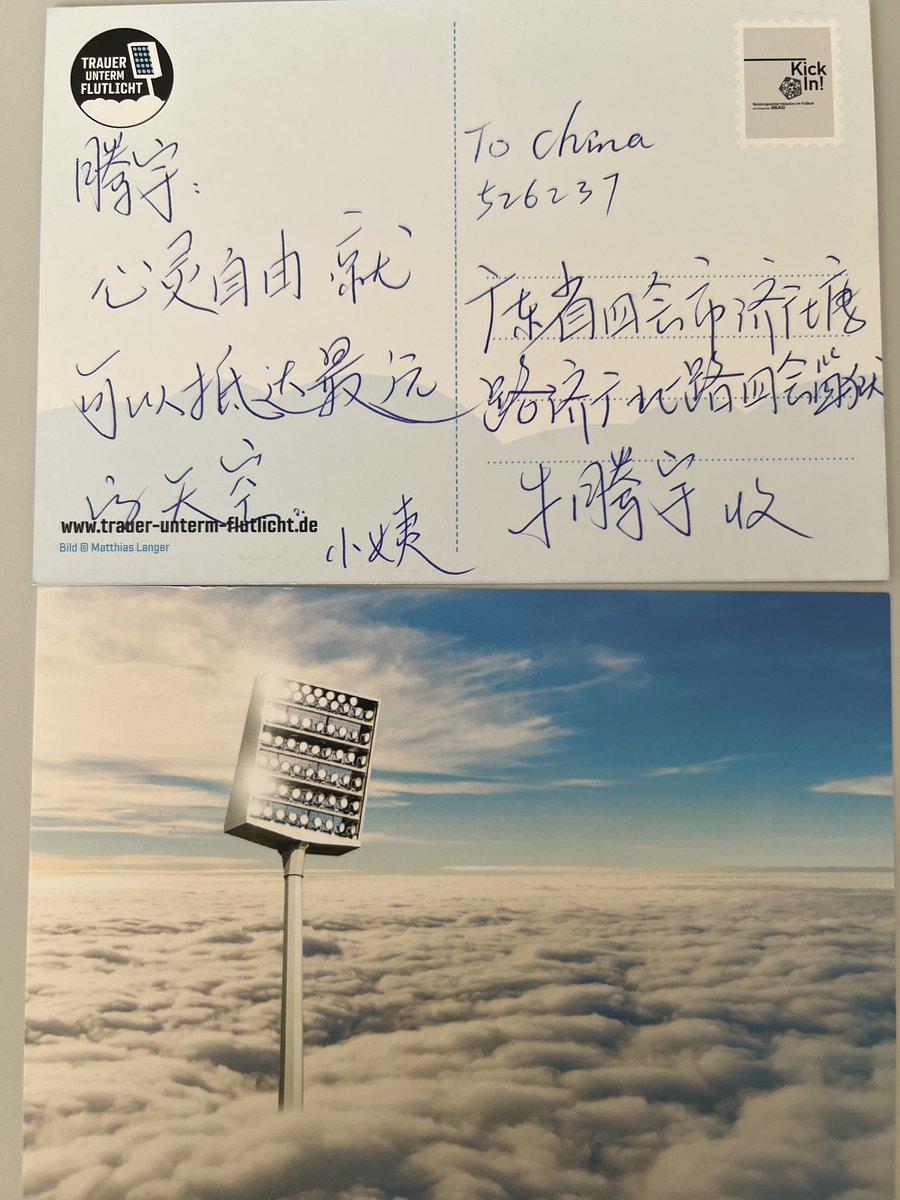 TRAUER
UNTERM
FLUTLICHT
腾宇:
心灵自由 就
可以抵达最远
的天空。
www.trauer-unterm-flutlicht.de
Bild © Matthias Langer
小姨
Kick
In!
Beratungsstelle Inklusion im Fußball
To China
526237
广东省四会市济广塘
路济广北路四会监狱
牛腾宇 收